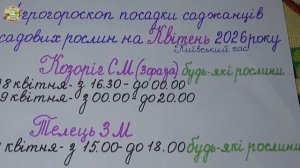 Агрогороскоп посадки саджанців
садових рослин на Квітень 2026 року
Київський час
Козоріг СМ (3фаза) будь-які рослини
8 квітня- з 16.30- до 00.00
9 квітня- з 00.00- до 20.00
Телець ЗМ
квітня- з 15.00- до 18.00 будь-які рослини